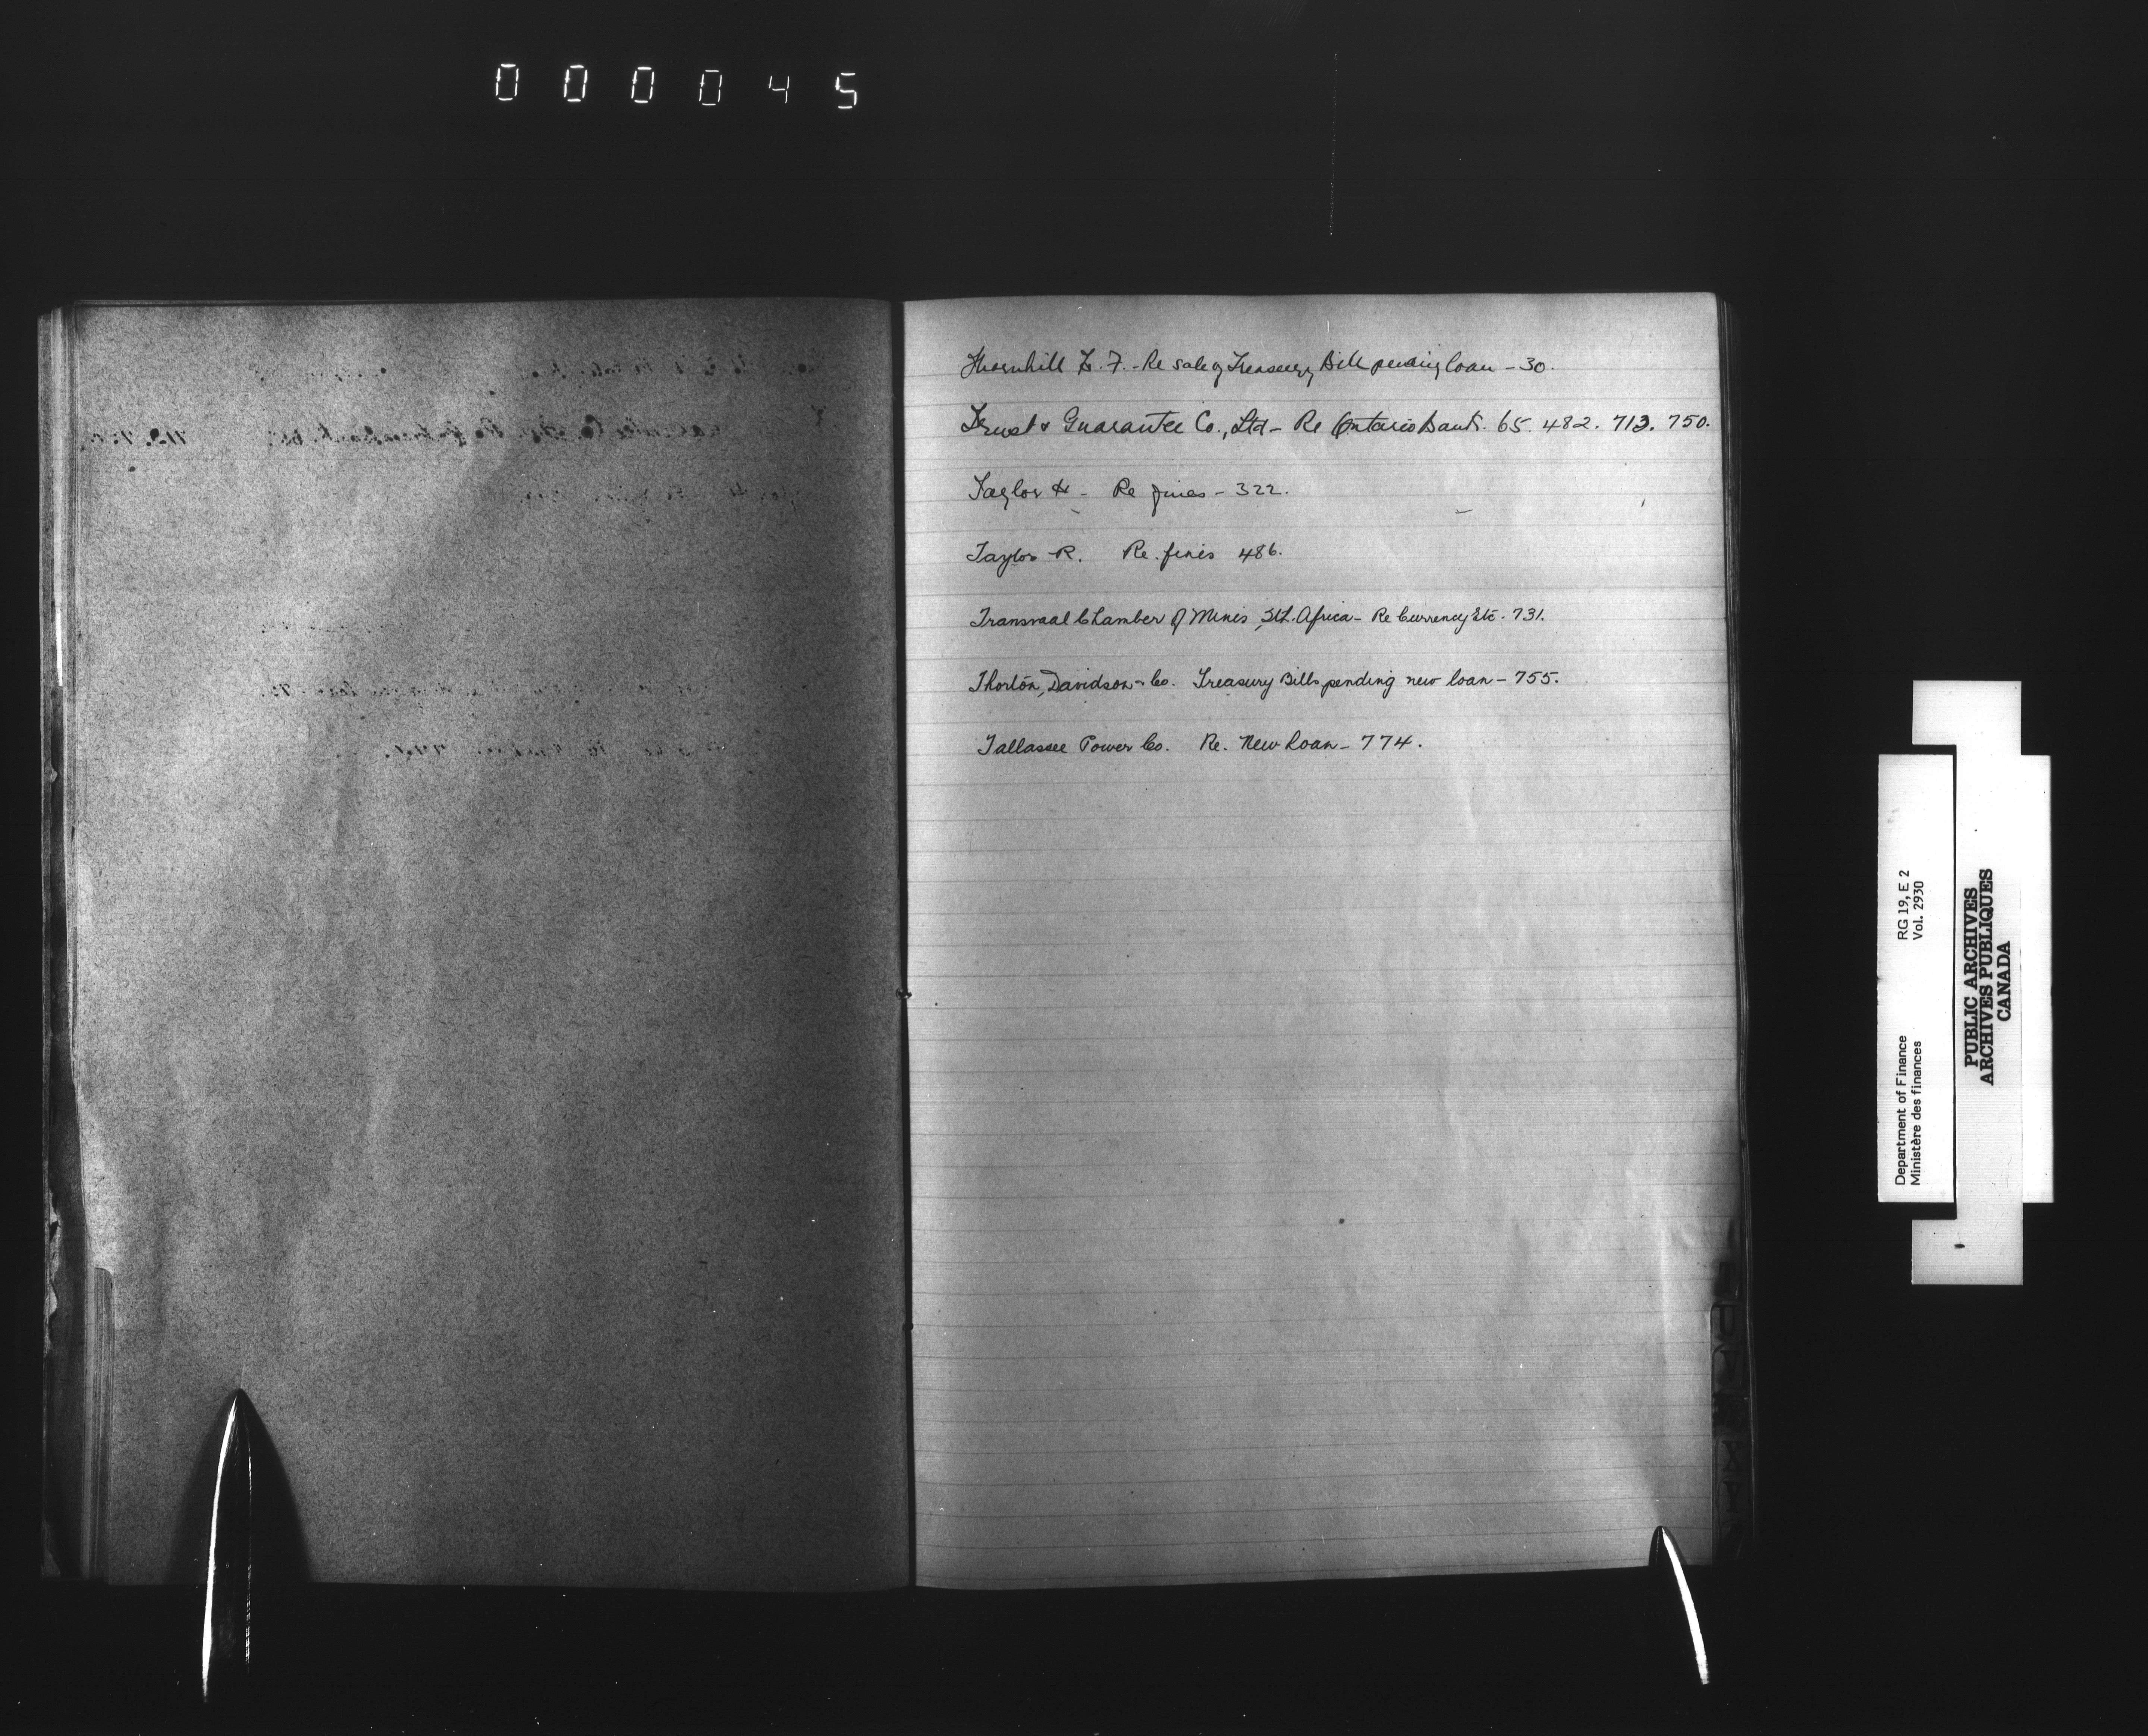 000045
Thornhill F. F. - Re sale of Treasury Bill pending loan - 30.
Trust & Guarantee Co., Ltd - Re Ontario Bank. 65. 482. 713. 750.
Taylor H - Re fines - 322.
Taylor R. Re. fines 486.
Transvaal Chamber of Mines, Sth. Africa - Re Currency Etc. 731.
Thorton, Davidson & Co. Treasury Bills pending new loan - 755.
Tallassee Power Co. Re. New Loan - 774.
Department of Finance RG 19, E 2
Ministère des finances Vol. 2930
PUBLIC ARCHIVES
ARCHIVES PUBLIQUES
CANADA